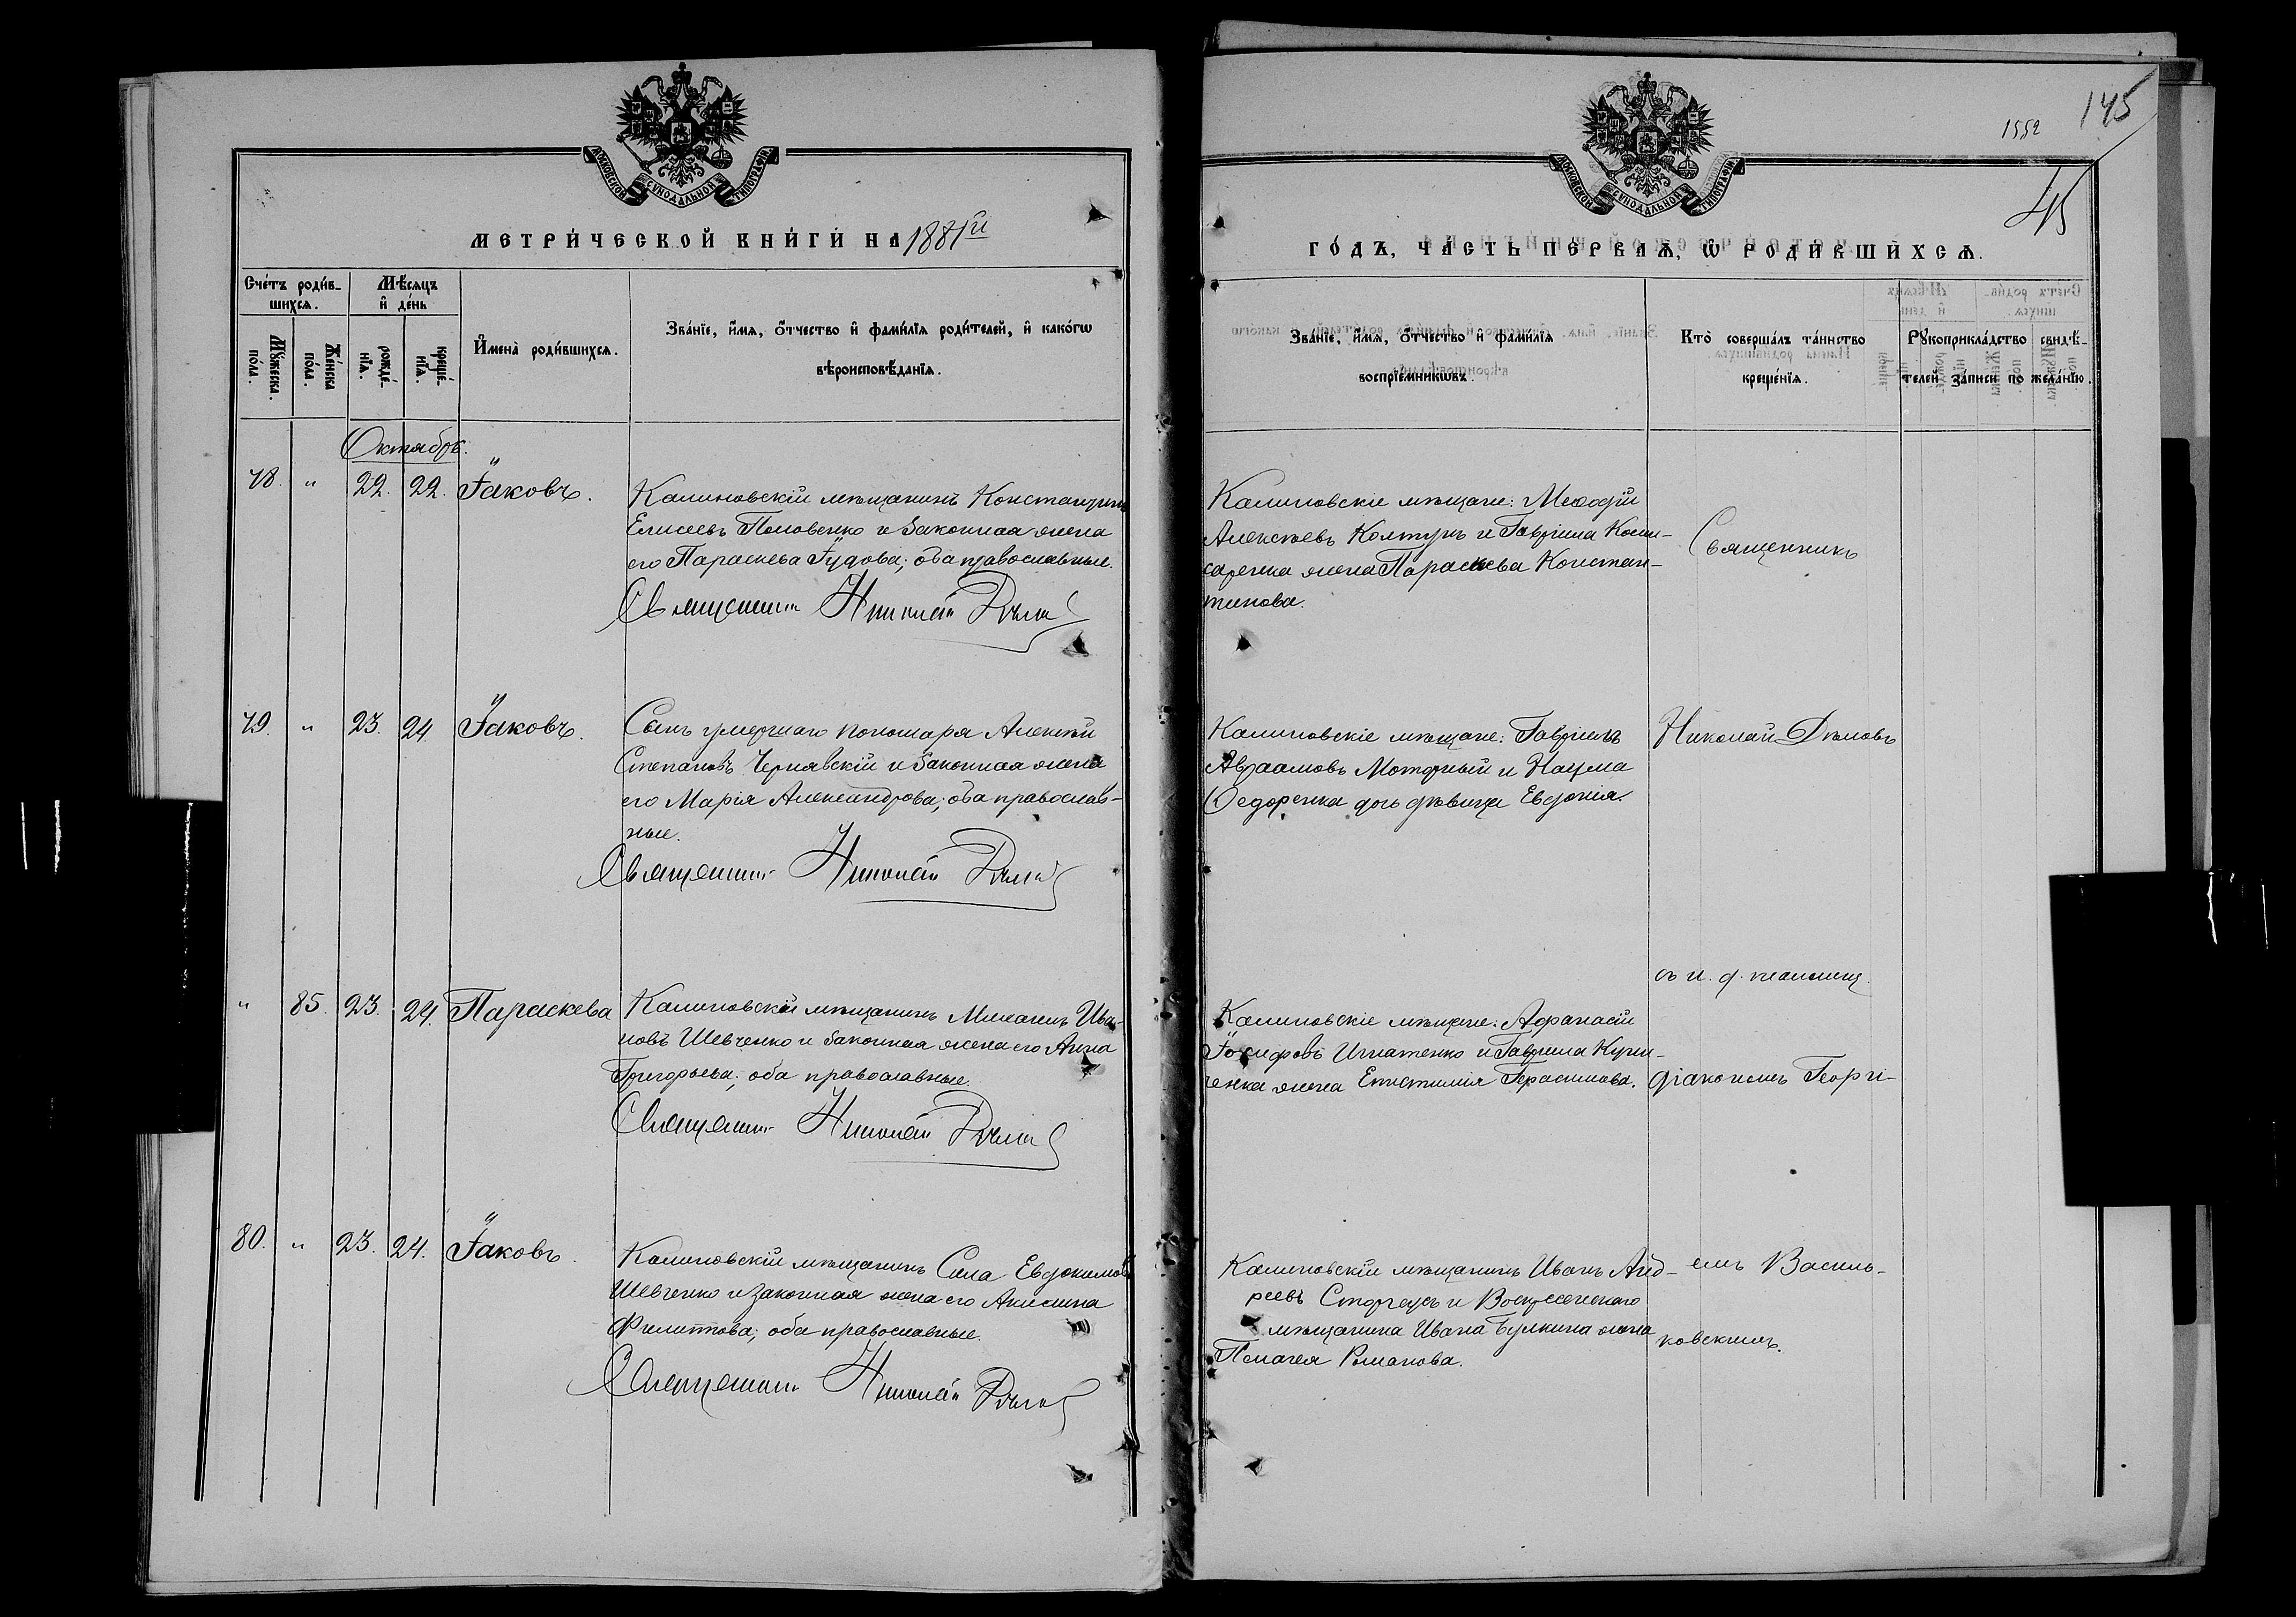 МОСКОВСКОЙ СѴНОДАЛЬНОЙ ТИПОГРАФІИ
МЕТРИ́ЧЕСКОЙ КНИ́ГИ НА 1881й
Сче́тъ роди́в-
шихся.
Мѣ́сяцъ
и҆ де́нь
Мꙋ́жеска
по́ла.
Же́нска
по́ла.
рожде́-
нїѧ.
креще́-
нїѧ.
И҆мена̀ роди́вшихсѧ.
Зва́нїе, и҆́мѧ, ѻ҆́тчество и҆ фами́лїѧ роди́телей, и҆ како́гѡ
вѣроисповѣ́данїѧ.
Октябрь.
78. " 22. 22. Іаковъ.
Калиновскій мѣщанинъ Константинъ
Елисеевъ Половенко и законная жена
его Параскева Іудова; оба православные.
Священникъ Николай Дъмовъ
79. " 23. 24. Іаковъ.
Сынъ умершаго пономаря Алексѣй
Степановъ Чернявскій и законная жена
его Марія Александрова; оба православ-
ные.
Священникъ Николай Дъмовъ
" 85. 23. 24. Параскева
Калиновскій мѣщанинъ Михаилъ Ива-
новъ Шевченко и законная жена его Анна
Григорьева; оба православные.
Священникъ Николай Дъмовъ
80. " 23. 24. Іаковъ.
Калиновскій мѣщанинъ Сила Евдокимовъ
Шевченко и законная жена его Анисина
Филиппова; оба православные.
Священникъ Николай Дъмовъ
МОСКОВСКОЙ СѴНОДАЛЬНОЙ ТИПОГРАФІИ
1552
145
45
ГО́ДЪ, ЧА́СТЬ ПЕ́РВАѦ, Ѡ РОДИ́ВШИХСѦ.
Зва́нїе, и҆́мѧ, ѻ҆́тчество и҆ фами́лїѧ
воспрїе́мникѡвъ.
Кто̀ соверша́лъ та́инство
креще́нїѧ.
Рꙋкоприкла́дство свидѣ́-
телей за́писи по жела́нїю.
Калиновскіе мѣщане: Меѳодій
Алексѣевъ Колтунъ и Гавріила Коми-
саренка жена Параскева Констан-
тинова.
Священникъ
Калиновскіе мѣщане: Гавріилъ
Авраамовъ Моторный и Наума
Ѳедоренка дочь дѣвица Евдокія.
Николай Дъмовъ
съ и. д. псаломщ.
Калиновскіе мѣщане: Аѳанасій
Іосифовъ Игнатенко и Гавріила Кури-
ченка жена Епистимія Герасимова.
діакономъ Георгі-
Калиновскій мѣщанинъ Иванъ Анд-
реевъ Сторчеусъ и Воскресенскаго
мѣщанина Ивана Булкина жена
Пелагея Романова.
емъ Василь-
ковскимъ.